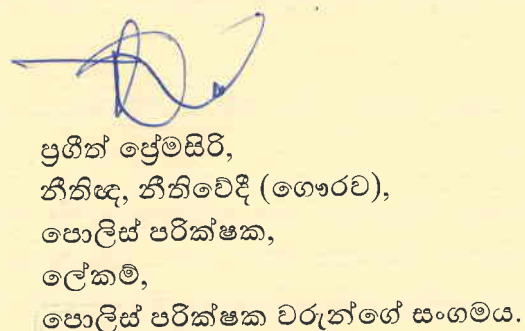 ප්‍රගීත් ප්‍රේමසිරි,
නීතිඥ, නීතිවේදී (ගෞරව),
පොලිස් පරික්ෂක,
ලේකම්,
පොලිස් පරික්ෂක වරුන්ගේ සංගමය.